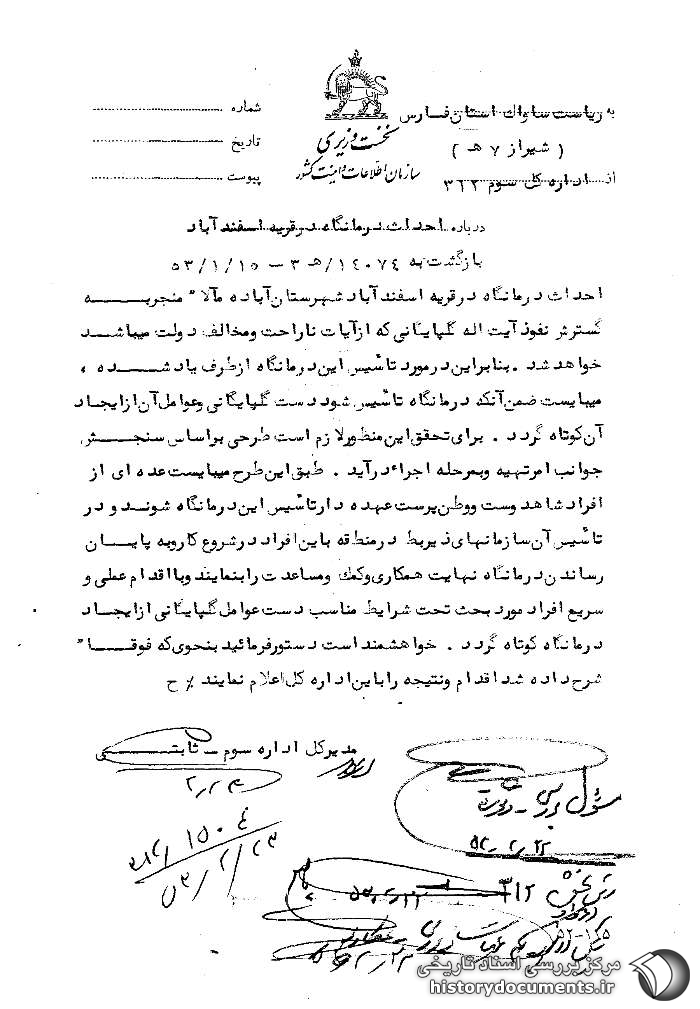 به ریاست ساواک استان فارس
( شیراز ۷ هـ )
از اداره کل سوم ۳۶۲
نخست وزیری
سازمان اطلاعات و امنیت کشور
شماره
تاریخ
پیوست
درباره احداث درمانگاه در قریه اسفند آباد
بازگشت به ۱۴۰۷۴/هـ ۳ – ۵۳/۱/۱۵
احداث درمانگاه در قریه اسفند آباد شهرستان آباده مآلا" منجر به
گسترش نفوذ آیت اله گلپایگانی که از آیات ناراحت و مخالف دولت میباشد
خواهد شد . بنابراین در مورد تاسیس این درمانگاه از طرف یاد شده ،
میبایست ضمن آنکه درمانگاه تاسیس شود دست گلپایگانی و عوامل آن از ایجاد
آن کوتاه گردد . برای تحقق این منظور لازم است طرحی بر اساس سنجش
جوانب امر تهیه و بمرحله اجراء درآید . طبق این طرح میبایست عده ای از
افراد شاهدوست و وطن پرست عهده دار تاسیس این درمانگاه شوند و در
تاسیس آن سازمانهای ذیربط در منطقه باین افراد در شروع کار و به پایان
رساندن درمانگاه نهایت همکاری و کمک و مساعدت را بنمایند و با اقدام عملی و
سریع افراد مورد بحث تحت شرایط مناسب دست عوامل گلپایگانی از ایجاد
درمانگاه کوتاه گردد . خواهشمند است دستور فرمائید بنحوی که فوقا"
شرح داده شد اقدام و نتیجه را باین اداره کل اعلام نمایند ٪ ح
مدیر کل اداره سوم – ثابتی
مسئول بررسی
۳۱۲
۳۱۲/۱۵۰۴
۵۳/۲/۲۳
مرکز بررسی اسناد تاریخی
historydocuments.ir